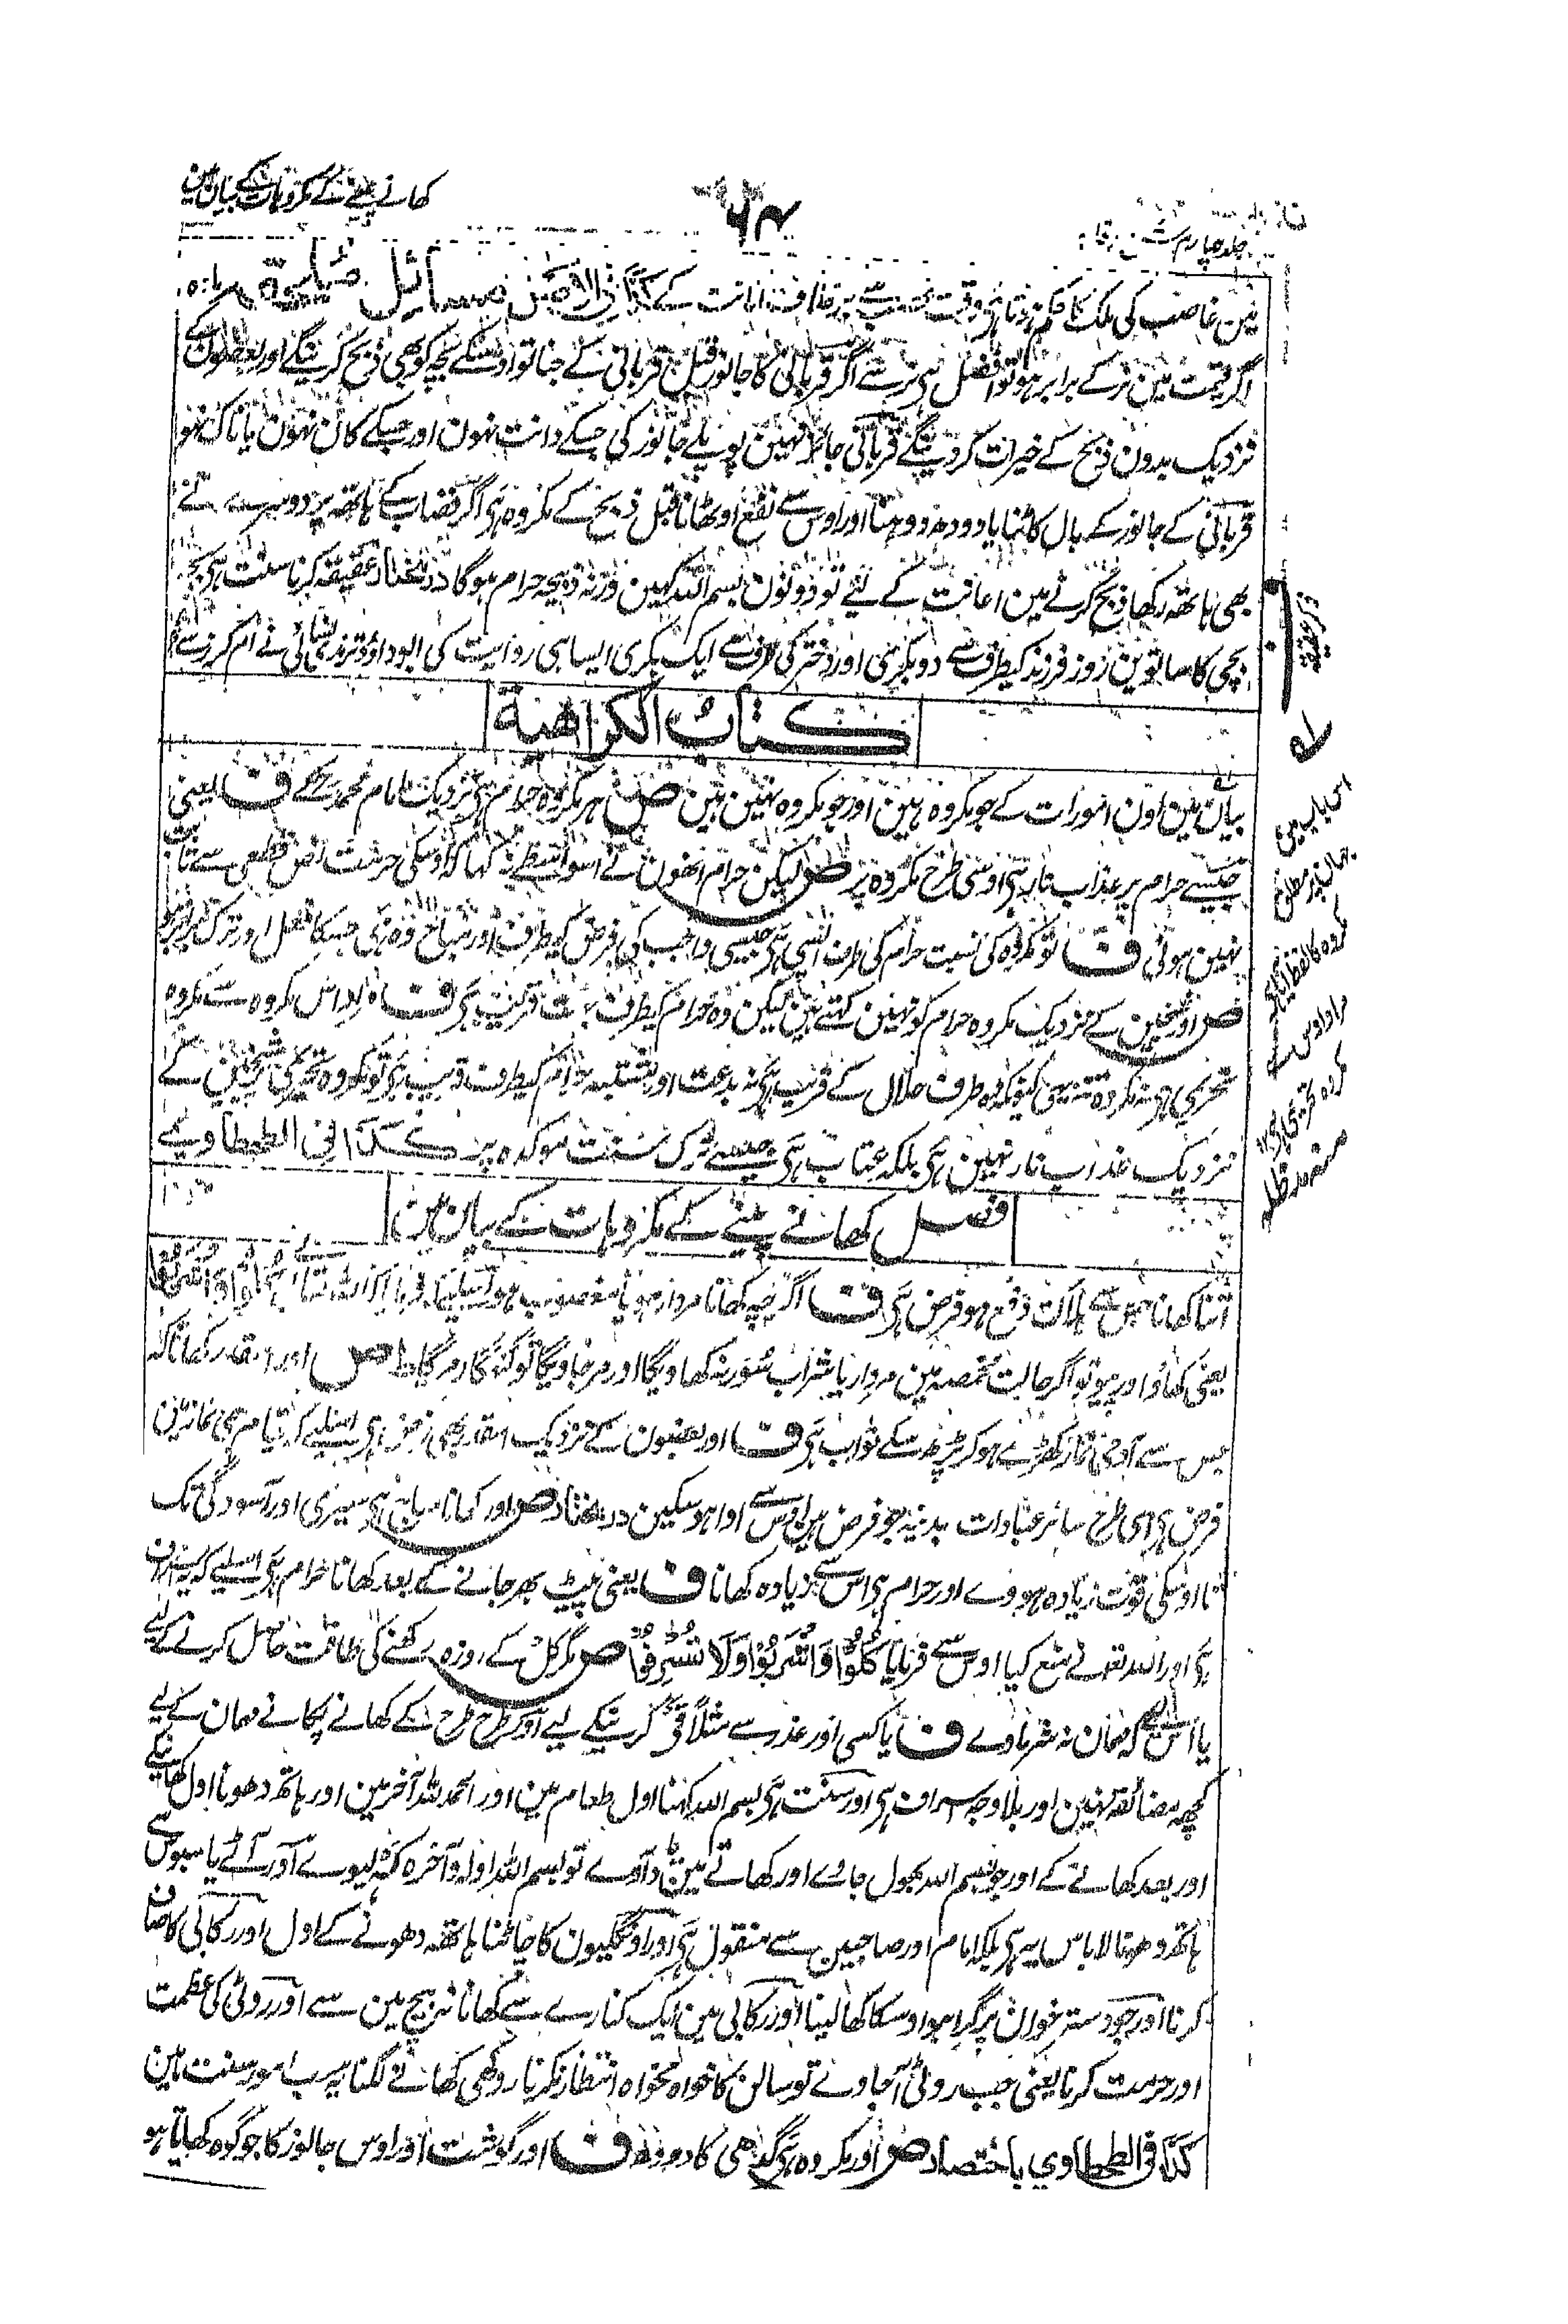 کھانے پینے کے مکروہات کے بیان مین
۶۴
جلد چہارم شرح وقایہ
مین غاصب کی ملک کا حکم ہوتا ہی وقت غصب سے برخلاف امانت کے کذا فی الاصل مسائل
اگر قیمت مین نر کے برابر ہو تو افضل ہی نر سے اگر قربانی کا جانور قبل قربانی کے جنا تو اوسکے بچہ کو بھی ذبح کرینگے اور بعضون کے
نزدیک بدون ذبح کے خیرات کر دینگے قربانی جائز نہین پوپلے جانور کی جسکے دانت نہون اور جسکے کان نہون یا ناک نہو
قربانی کے جانور کے بال کاٹنا یا دودھ دوہنا اور اوس سے نفع اوٹھانا قبل ذبح کے مکروہ ہی اگر قصاب کے ہاتھ پر دوسرے نے
بھی ہاتھ رکھا ذبح کرنے مین اعانت کے لئے تو دونون بسم اللہ کہین ورنہ ذبیحہ حرام ہوگا درمختار عقیقہ کرنا سنت ہی بچہ
بچی کا ساتوین روز فرزند کیطرف سے دو بکری اور دختر کی طرف سے ایک بکری ایسا ہی روایت کی ابوداؤد ترمذی نسائی نے ام کرز سے
کتاب الکراھیة
بیان مین اون امورات کے جو مکروہ ہین اور جو مکروہ نہین ہین ص ہر مکروہ حرام ہی نزدیک امام محمد رح کے ف یعنی
جیسے حرام پر عذاب نار ہی اوسی طرح مکروہ پر ص لیکن حرام انھون نے اسواسطے نہ کہا کہ اوسکی حرمت نص قطعی سے ثابت
نہین ہوئی ف تو مکروہ کی نسبت حرام کی طرف ایسی ہی جیسی واجب کی فرض کیطرف اور مباح وہ ہی جسکا فعل اور ترک برابر ہو
ص اور شیخین کے نزدیک مکروہ حرام کو نہین کہتے ہین لیکن وہ حرام کیطرف بہت قریب ہی ف مراد اس مکروہ سے مکروہ
تحریمی ہی نہ مکروہ تنزیہی کیونکہ وہ طرف حلال کے قریب ہی نہ بدعت اور مشتبہ حرام کیطرف قریب ہی تو مکروہ تحریمی پر شیخین کے
نزدیک عذاب نار نہین ہی بلکہ عتاب ہی جیسے ترک سنت موکدہ پر کذا فی الطحطاوی
فصل کھانے پینے کے مکروہات کے بیان مین
اتنا کھانا جس سے ہلاکت دفع ہو فرض ہی ف اگرچہ کھانا مردار ہو یا مغصوب ہو اسلیے کہ فرمایا اللہ تعالی نے کلوا واشربوا
یعنی کھاؤ اور پیو تو اگر حالت مخمصہ مین مردار یا شراب سور نہ کھاویگا اور مر جاویگا تو گنہگار مریگا ط ص اور اسقدر کھانا کہ
جس سے آدمی نماز کھڑے ہو کر پڑھ سکے ثواب ہی ف اور بعضون کے نزدیک اسقدر بھی فرض ہی اسلیے کہ قیام بھی نماز مین
فرض ہی اسی طرح سائر عبادات بدنیہ جو فرض ہین اوس سے ادا ہو سکین درمختار ص اور کھانا مباح ہی سیری اور آسودگی تک
تا اوسکی قوت زیادہ ہووے اور حرام ہی اس سے زیادہ کھانا ف یعنی پیٹ بھر جانے کے بعد کھانا حرام ہی اسلیے کہ یہ اسراف
ہی اور اللہ تعالی نے منع کیا اوس سے فرمایا كُلُوْا وَاشْرَبُوْا وَلَا تُسْرِفُوْا ص مگر کل کے روزہ رکھنے کی طاقت حاصل کرنے کے لیے
یا اسلیے کہ مہمان نہ شرماوے ف یا کسی اور عذر سے مثلاً قی کرنیکے لیے اور طرح طرح کے کھانے پکانے مہمان کے لیے
کچھ مضائقہ نہین اور بلا وجہ اسراف ہی اور سنت ہی بسم اللہ کہنا اول طعام مین اور الحمد للہ آخر مین اور ہاتھ دھونا اول کھانیکے
اور بعد کھانے کے اور جو بسم اللہ بھول جاوے اور کھانے مین یاد آوے تو بسم اللہ اولہ وآخرہ کہہ لیوے اور آٹے یا سبوس سے
ہاتھ دھونا لاباس بہ ہی بلکہ امام اور صاحبین سے منقول ہی اور اونگلیون کا چاٹنا ہاتھ دھونے کے اول اور رکابی کا صاف
کرنا اور جو دسترخوان پر گرا ہو اوسکا کھا لینا اور رکابی مین ایک کنارے سے کھانا نہ بیچ مین سے اور روٹی کی عظمت
اور حرمت کرنا یعنی جب روٹی آ جاوے تو سالن کا خواہ مخواہ انتظار نکرنا روکھی کھانے لگنا یہ سب امور سنت ہین
کذا فی الطحطاوی باختصار ص اور مکروہ ہی گدھی کا دودھ ف اور گوشت اور اوس جانور کا جو گوہ کھاتا ہو
اس باب مین
جہان پر مطلق
مکروہ کا لفظ آیا ہی
مراد اوس سے
مکروہ تحریمی ہی
منہ مد ظلہ